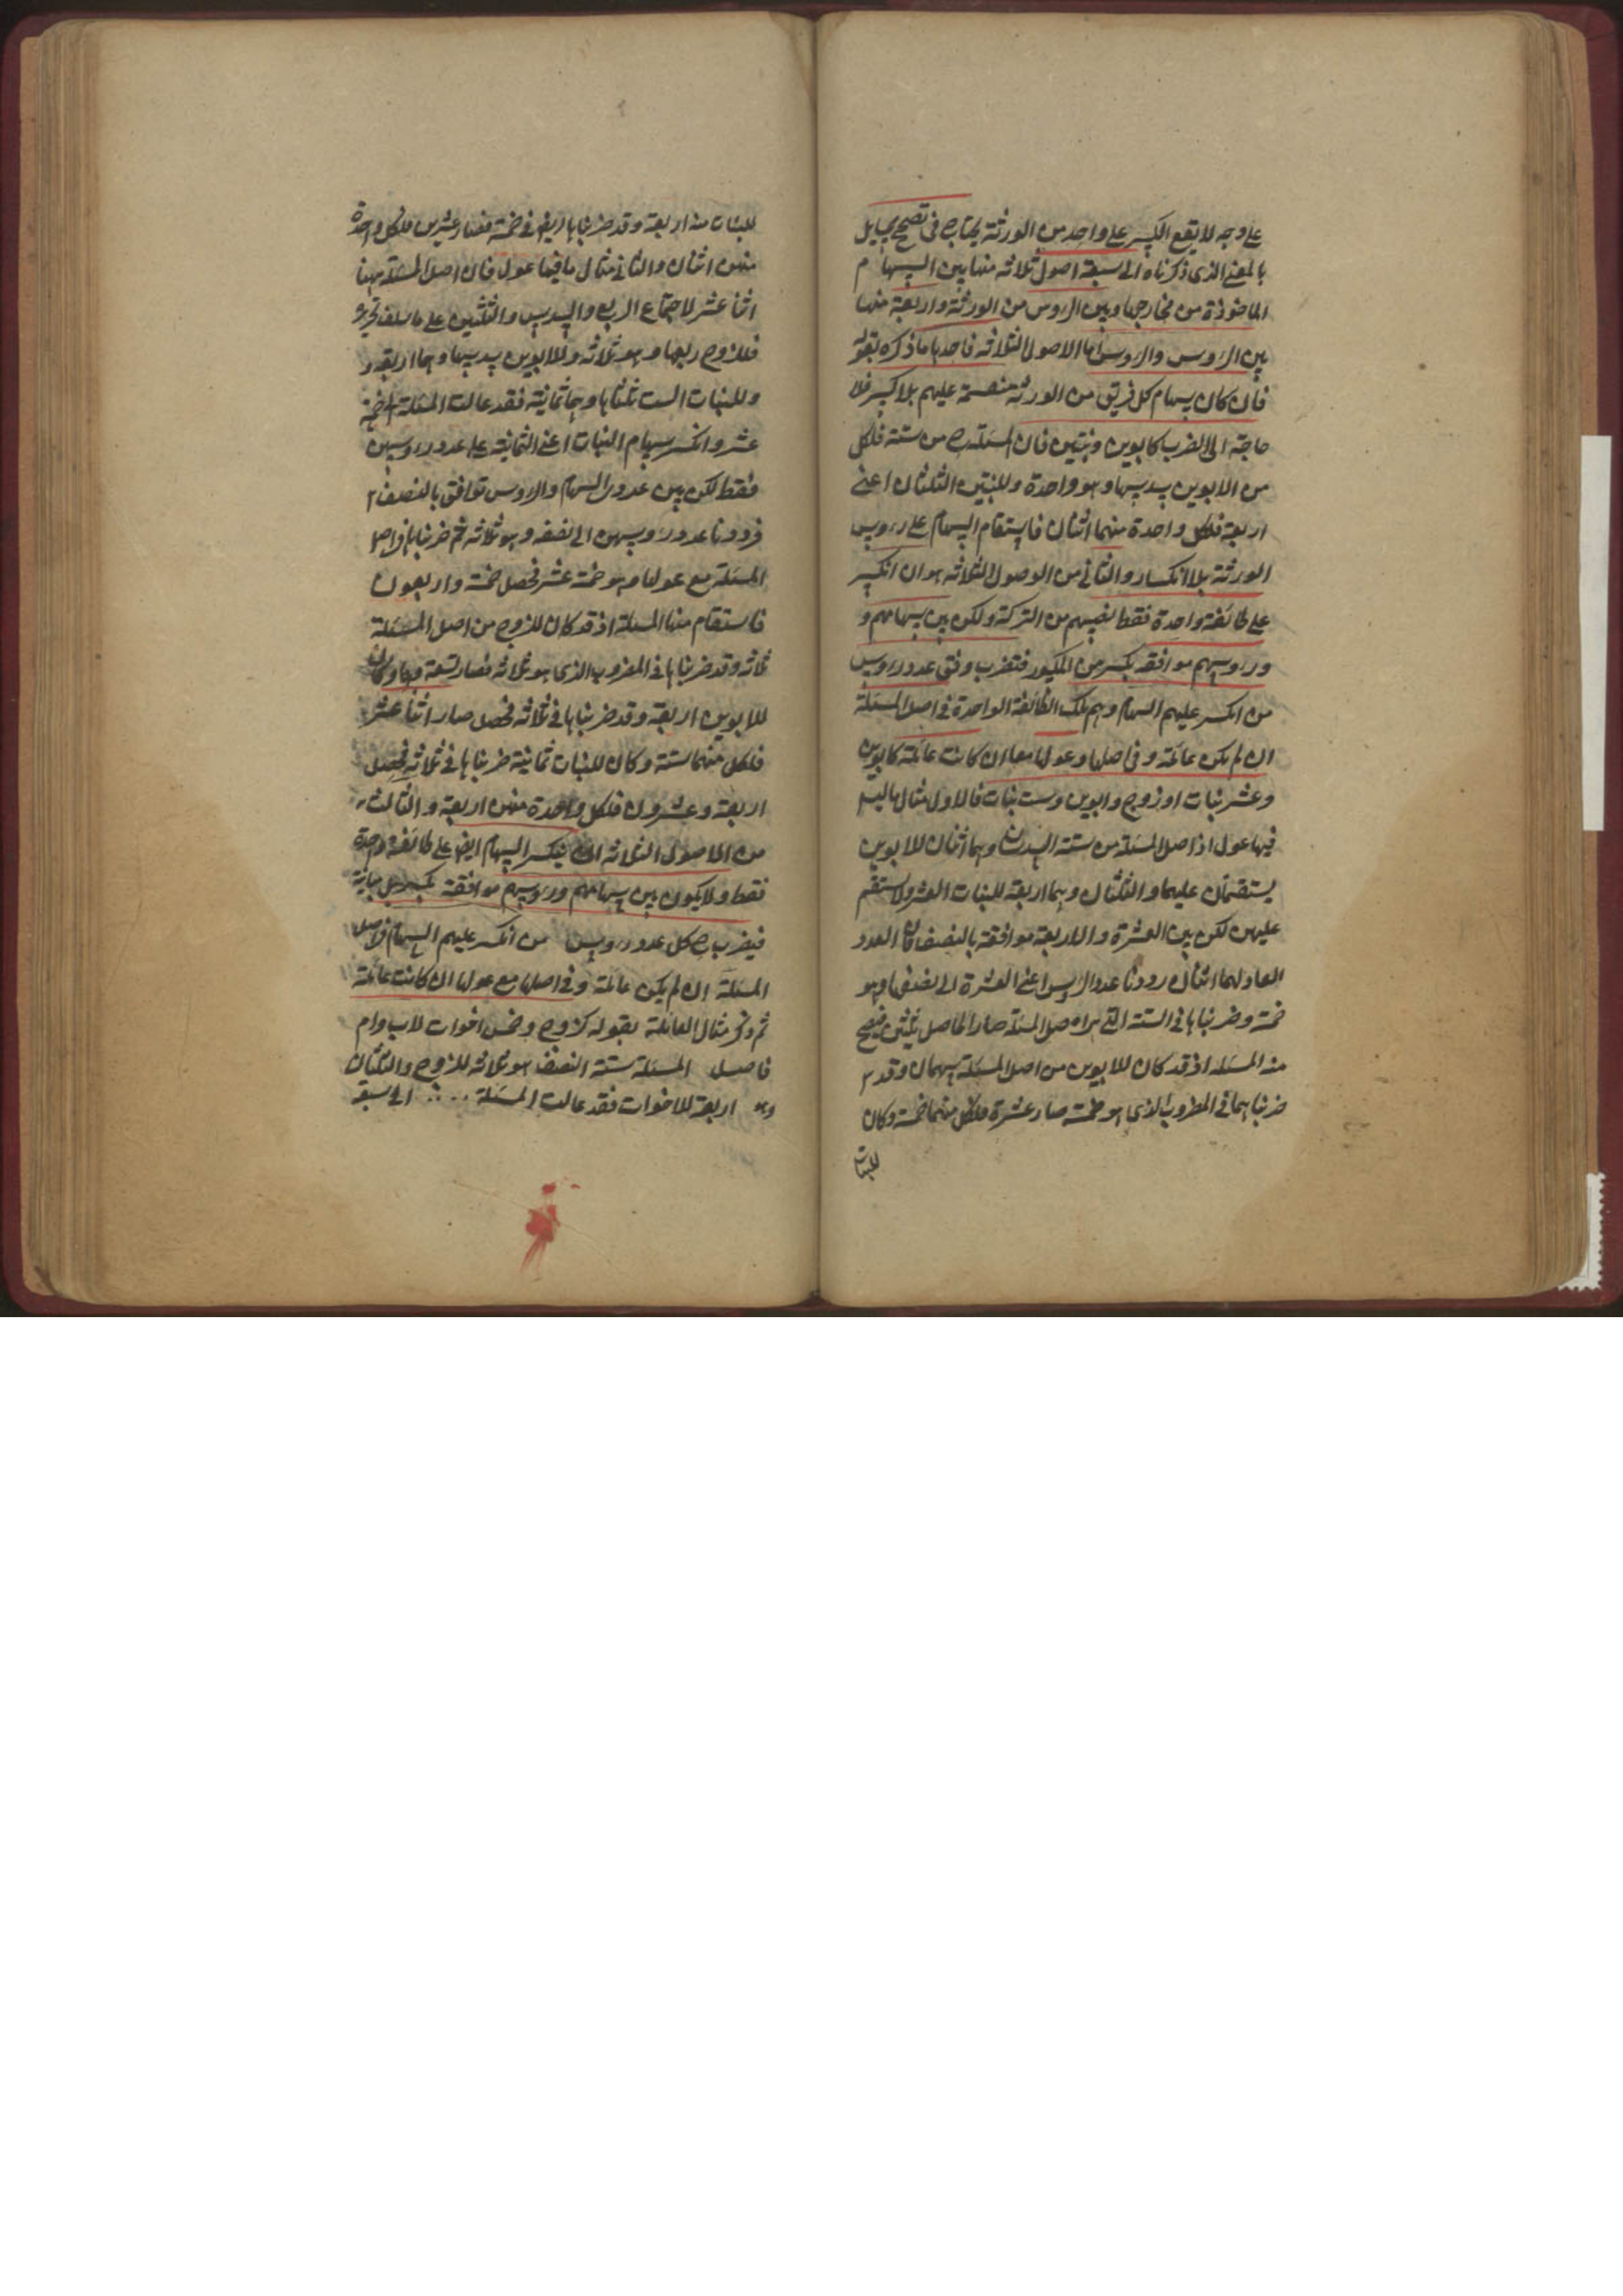 على وجه لا يقع الكسر على واحد من الورثة يحتاج في تصحيح المسايل
بالمعنى الذى ذكرناه الى سبعة اصول ثلاثة منها بين السهام م
الماخوذة من مخارجها وبين الروس من الورثة واربعة منها
بين الروس والروس اما الاصول الثلاثه فاحدها ما ذكره بقوله
فان كان سهام كل فريق من الورثه منقسمة عليهم بلا كسر فلا
حاجة الى الضرب كابوين وبنتين فان المسئلة ح من ستة فلكل
من الابوين سدسها وهو واحدة وللبنتين الثلثان اعنى
اربعة فلكل واحدة منهما اثنان فاستقام السهام على رؤس
الورثة بلا انكسار والثانى من الوصول الثلاثه هو ان انكسر
على طائفة واحدة فقط نصيبهم من التركة ولكن بين سهامهم و
ورؤسهم موافقه بكسر من الكسور فتضرب وفق عدد رؤس
من انكسر عليهم السهام وهم تلك الطائفة الواحدة في اصل المسئلة
ان لم يكن عائلة وفى اصلها وعولها معا ان كانت عائلة كابوين
وعشر بنات او زوج وابوين وست بنات فالاول مثال ما ليس
فيها عول اذ اصل المسئلة من ستة السدسان وهما اثنان للابوين
يستقيمان عليهما والثلثان وهما اربعة للبنات العشر ولا يستقيم
عليهن لكن بين العشرة والاربعة موافقة بالنصف فان العدد
العاد لهما اثنان رددنا عدد الروس اعنى العشرة الى نصفها وهو
خمسة وضربناها فى الستة التى هى اصل المسئلة صار الحاصل ثلثين فيصح
منه المسئله اذ قد كان للابوين من اصل المسئلة سهمان وقد
ضربناهما فى المضروب الذى هو خمسة صار عشرة فلكل منهما خمسة وكان
للبنات
للبنات منه اربعة وقد ضربناها ايضا فى خمسة فصار عشرين فلكل واحدة
منهن اثنان والثانى مثال ما فيها عول فان اصل المسئلة ههنا
اثنا عشر لاجتماع الربع والسدس والثلثين على ما سلف تحريره
فللزوج ربعها وهو ثلاثه وللابوين سدسها وهما اربعة و
وللبنات الست ثلثاها وهى ثمانية فقد عالت المسئلة الى خمسة
عشر وانكسر سهام البنات اعنى الثمانية على عدد رؤسهن
فقط لكن بين عدد السهام والروس توافق بالنصف
فرددنا عدد رؤسهن الى نصفه وهو ثلاثه ثم ضربناها فى اصل
المسئلة مع عولها وهو خمسة عشر فحصل خمسة واربعون
فاستقام منها المسئلة اذ قد كان للزوج من اصل المسئلة
ثلاثه وقد ضربناها فى المضروب الذى هو ثلاثه فصار تسعة فهى له وكان
للابوين اربعة وقد ضربناها فى ثلاثه فحصل صار اثنا عشر
فلكل منهما ستة وكان للبنات ثمانية ضربناها فى ثلاثه فحصل
اربعة وعشرون فلكل واحدة منهن اربعة والثالث
من الاصول الثلاثه ان ينكسر السهام ايضا على طائفة واحدة
فقط ولا يكون بين سهامهم ورؤسهم موافقة بكسر بل مباينة
فيضرب ح كل عدد رؤس من انكسر عليهم السهام فى اصل
المسئلة ان لم يكن عائلة وفى اصلها مع عولها ان كانت عائلة
ثم ذكر مثال العائلة بقوله كزوج وخمس اخوات لاب وام
فاصل المسئلة ستة النصف هو ثلاثه للزوج والثلثان
وهو اربعة للاخوات فقد عالت المسئلة .... الى سبعة